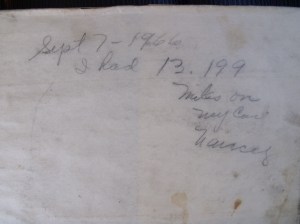 Sept 7 - 1966
I had 13.199
Miles on
my Car
Nancy